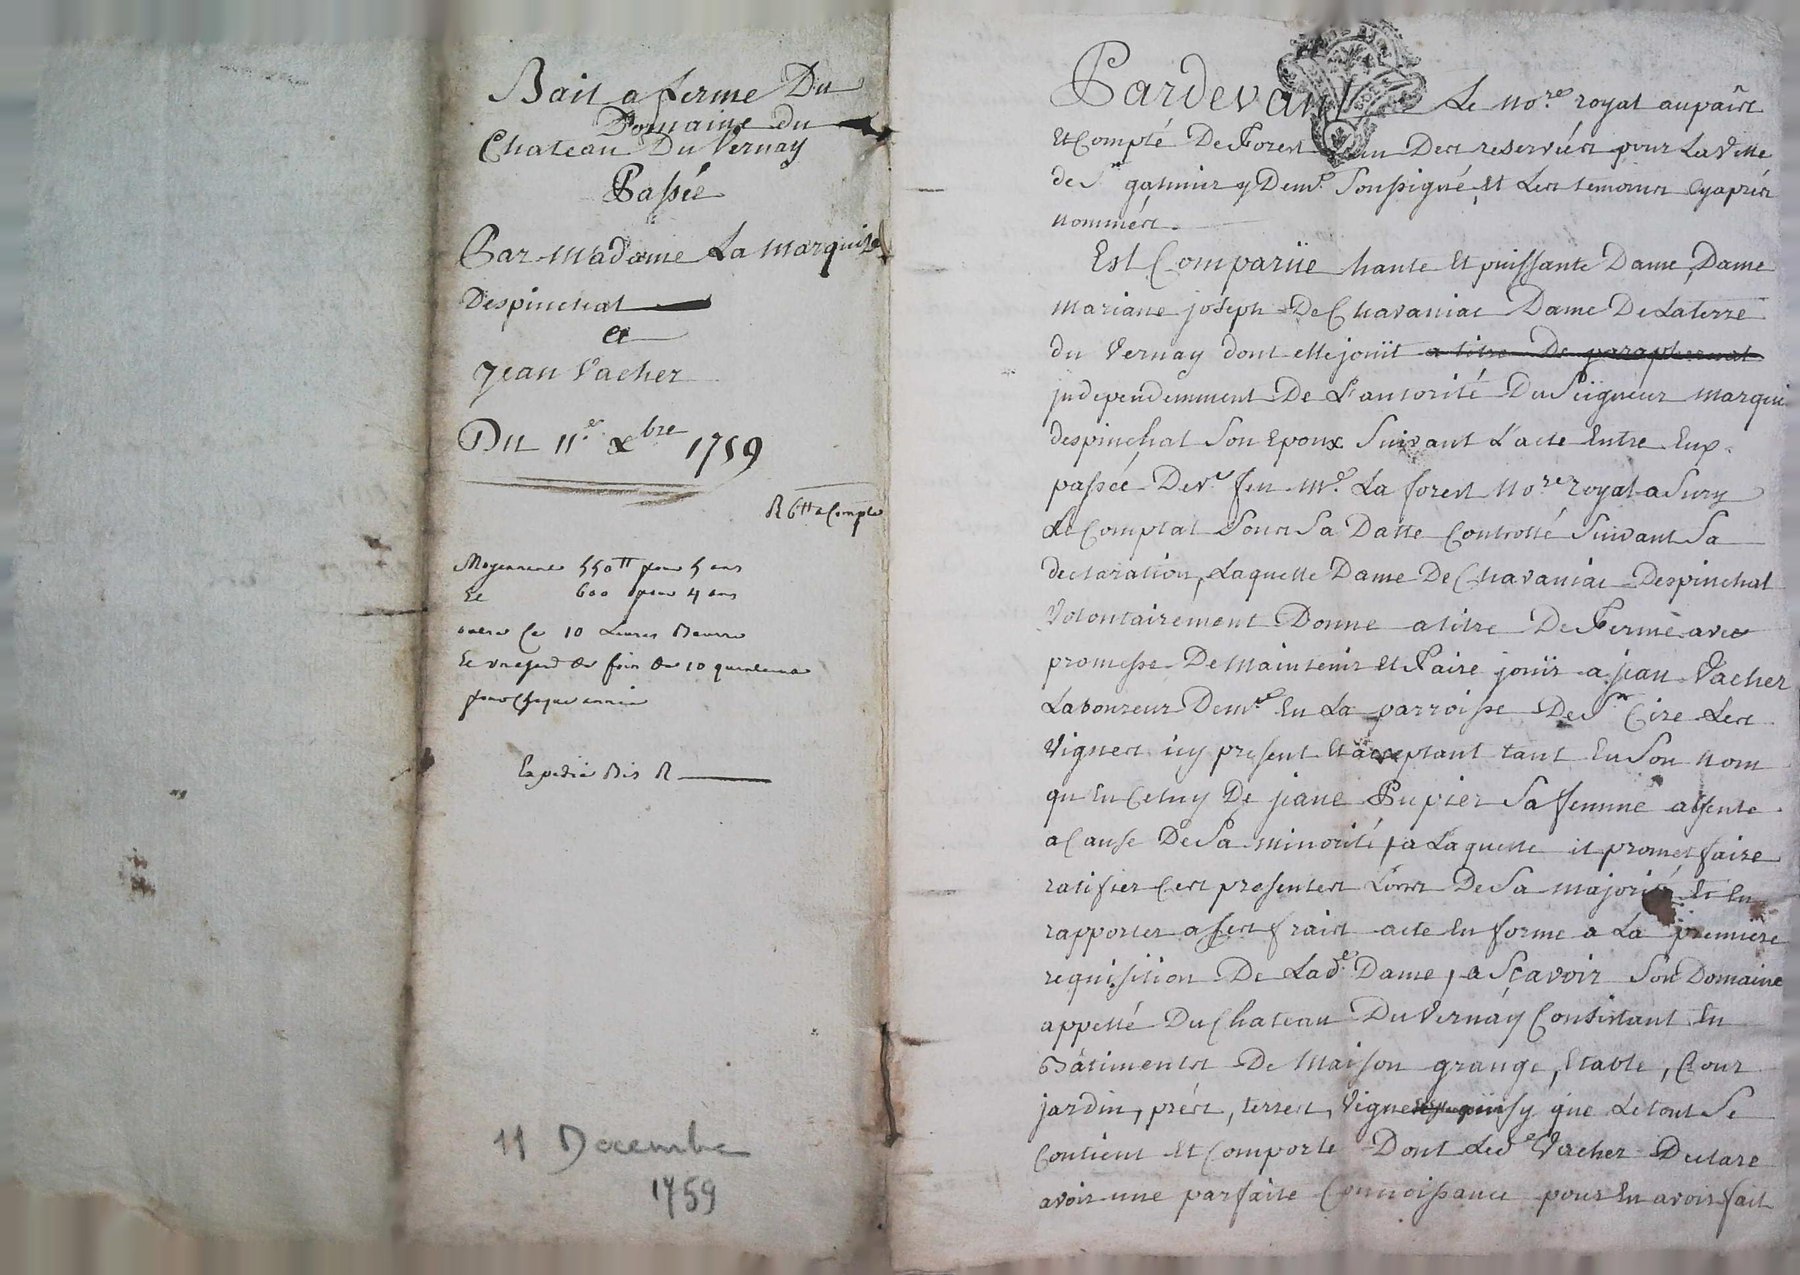 Bail a ferme Du
Domaine du
Chateau Du Vernay
Passée
Par Madame La Marquise
Despinchal
et
Jean Vacher
Du 11e Xbre 1759
R 6tt a Compte
Moyennant 550tt pour 5 ans
Et 600 pour 4 ans
outre ce 10 Livres Beurre
Et de foin de 10 quintaux
pour chaque année
Expedié Bis R
11 Decembre
1759
Pardevant Le nore royal au païs
Et Compté De Forest un Des reservées pour La Ville
de St galmier y Demt soussigné, et Les temoins cy aprés
nommés.
Est Comparüe haute Et puissante Dame, Dame
Mariane joseph De Chavaniac Dame De La terre
du Vernay dont elle joüit a titre De paraphernal
independemment De L'autorité Du Seigneur marquis
despinchal son Epoux suivant L'acte Entre Eux
passée Devt feu Me La forest nore royal a Sury
Le Comptal sous sa Datte Controllé suivant sa
declaration, Laquelle Dame De Chavaniac Despinchal
Volontairement Donne a titre De Ferme avec
promesse De maintenir et Faire joüir a jean Vacher
Laboureur Demt En La parroisse De St Cire Les
Vignes icy present Et acceptant tant En son nom
qu'En Celuy De jeane Pupier sa femme absente
a Cause De sa minorité, a Laquelle il promet faire
ratifier Ces presentes Lors De sa majorité Et En
rapporter a ses frais acte En forme a La premiere
requisition De Lade Dame, a sçavoir son Domaine
appellé Du Chateau Du Vernay Consistant En
Bâtiments De Maison grange, Etable, Cour
jardin, prés, terres, Vignes sy que Le tout se
Contient Et Comporte Dont Led Vacher Declare
avoir une parfaite Connoissance pour En avoir fait